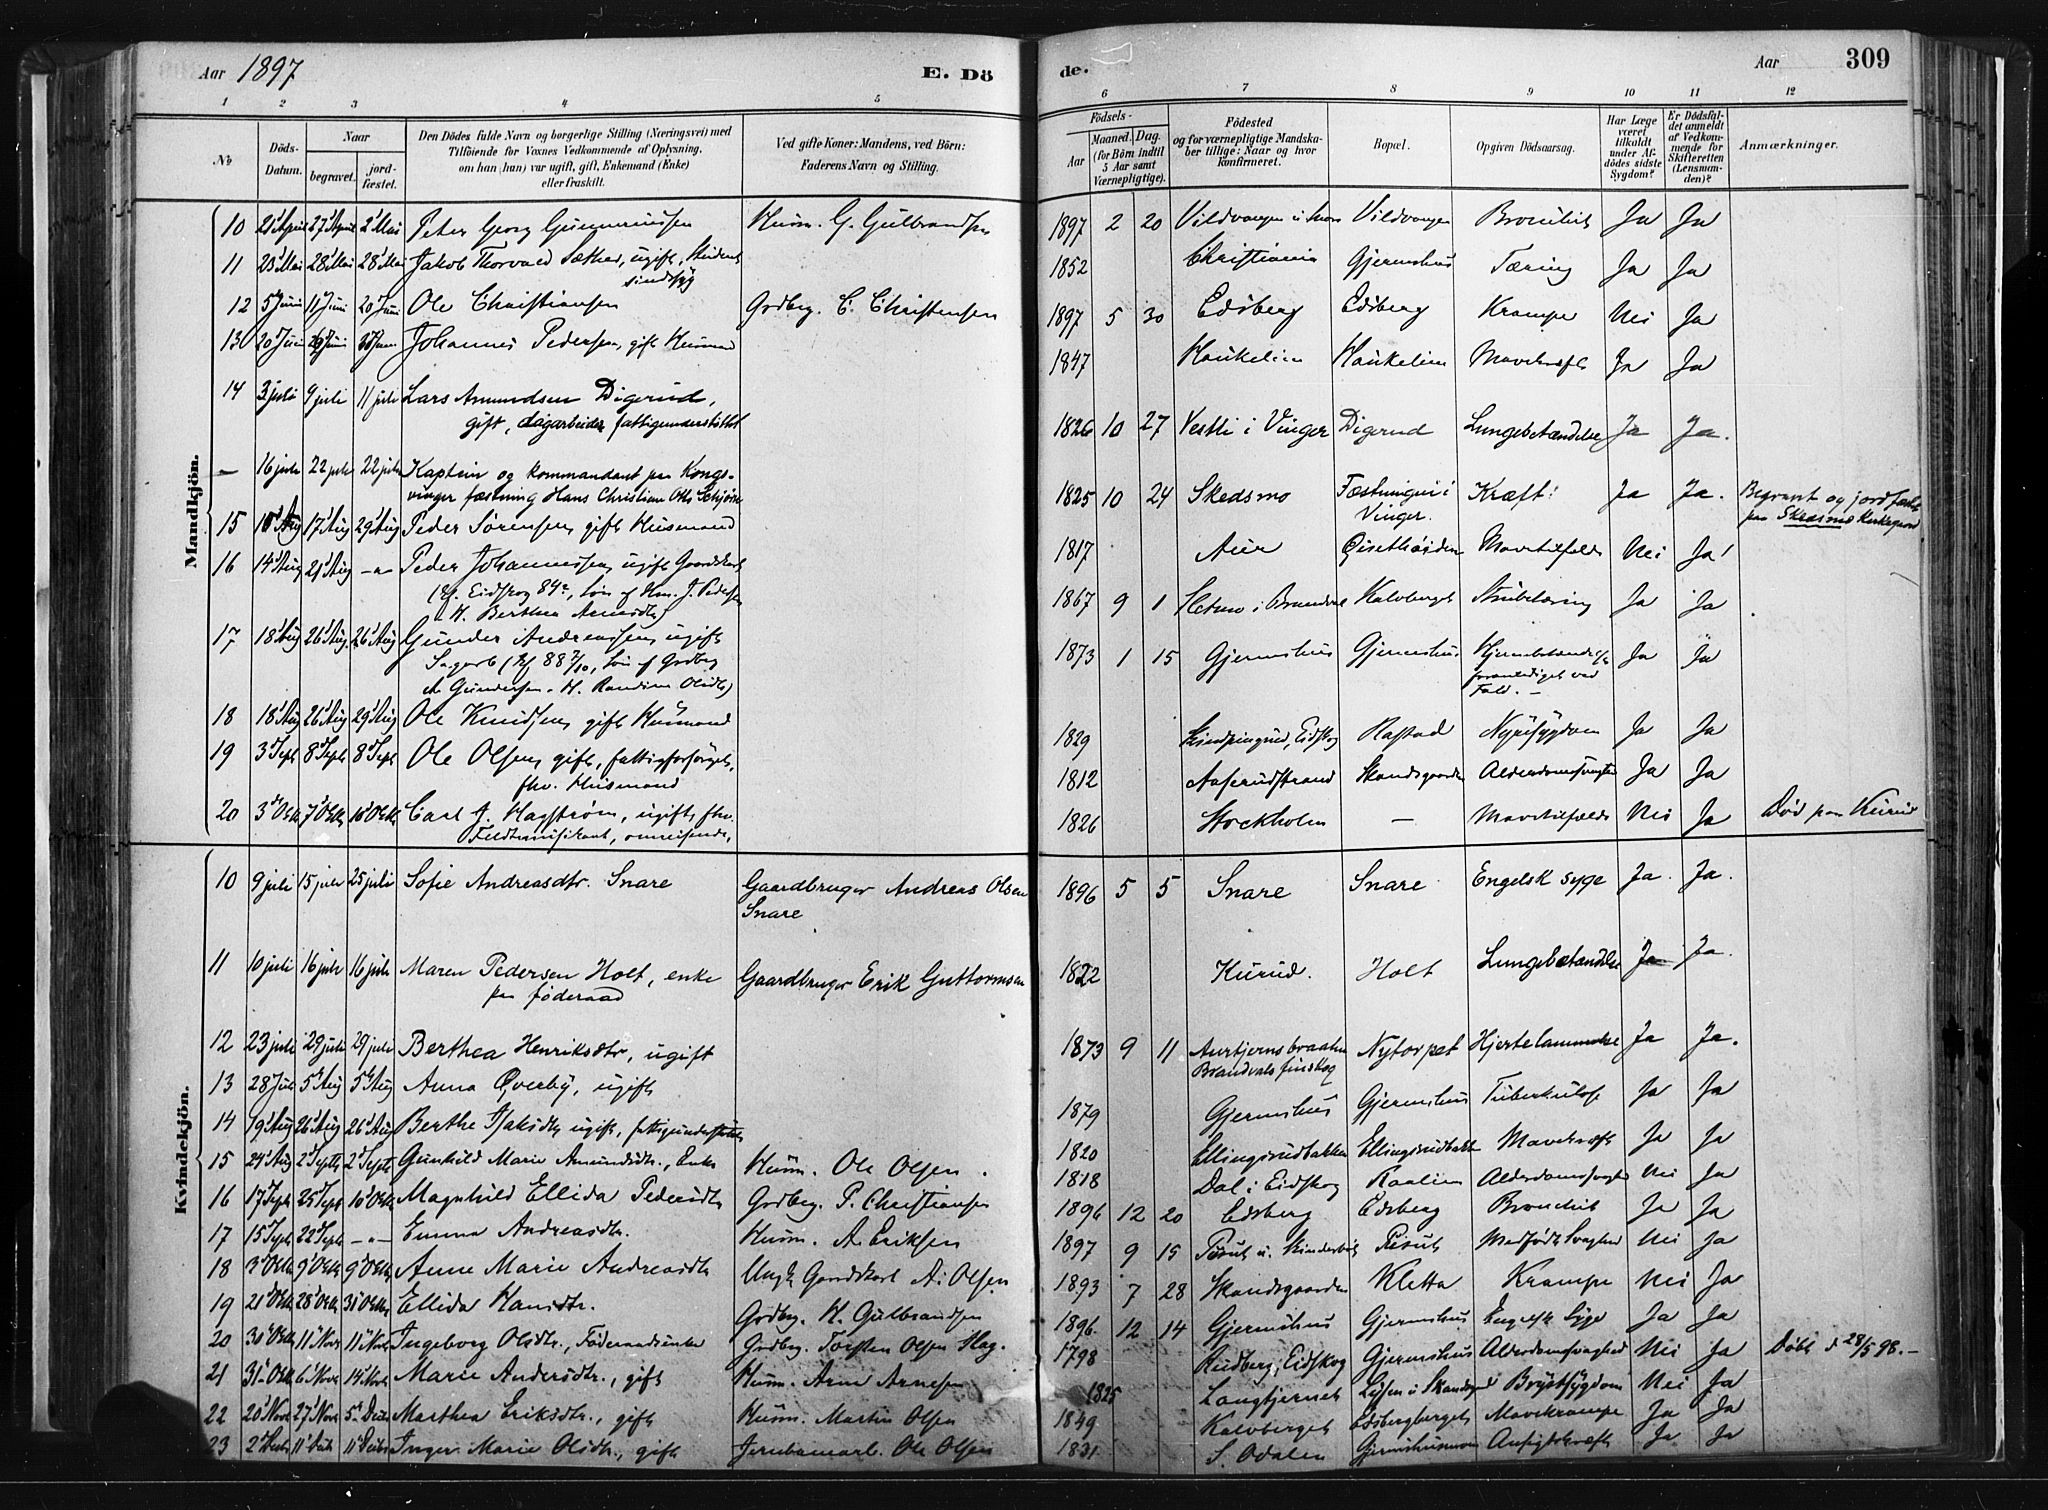 Aar 1897
E. Dö
de.
Aar 309
1 2 3 4 5 6 7 8 9 10 11 12
No
Döds-Datum.
Naar
begravet.
jord-fæstet.
Den Dödes fulde Navn og borgerlige Stilling (Næringsvei) med
Tilföiende for Voxnes Vedkommende af Oplysning,
om han (hun) var ugift, gift, Enkemand (Enke)
eller fraskilt.
Ved gifte Koner: Mandens, ved Börn:
Faderens Navn og Stilling.
Födsels-
Aar
Maaned. Dag.
(for Börn indtil
5 Aar samt
Værnepligtige).
Födested
og for værnepligtige Mandska-
ber tillige: Naar og hvor
konfirmeret.
Bopæl.
Opgiven Dödsaarsag.
Har Læge
været
tilkaldt
under Af-
dödes sidste
Sygdom?
Er Dödsfal-
det anmeldt
af Vedkom-
mende for
Skifteretten
(Lensman-
den)?
Anmærkninger.
Mandkjön.
10 21 April 27 April 2 Mai Peter Georg Gunneriussen Husm. G. Gulbrandsen 1897 2 20 Vildvangen Bronchit Ja Ja
11 23 Mai 28 Mai 28 Mai Jakob Thorvald Sæther, ugift, Student 1852 Christiania Gjermshus Tæring Ja Ja
sindssyg
12 5 Juni 11 Juni 20 Juni Ole Christiansen Grdbrg. C. Christensen 1897 5 30 Edsberg Edsberg Krampe Nei Ja
13 20 Juni 26 Juni Johannes Pedersen, gift Husmand 1847 Haukelien Haukelien Mavekræft Ja Ja
14 3 juli 9 juli 11 juli Lars Amundsen Digerud, 1826 10 27 Vestli i Vinger Digerud Lungebetændelse Ja Ja.
gift, dagarbeider fattigunderstøttet
— 16 juli 22 juli 22 juli Kaptein og kommandant paa Kongs-
vinger fæstning Hans Christian Otto 1825 10 24 Skedsmo Fæstningen i Vinger. Kræft Ja Ja. Begravet og jordfæstet
paa Skedsmo Kirkegaard
15 17 Aug 29 Aug Peder Sørensen gift Husmand 1817 Aur Mavetilfælde Nei Ja
16 14 Aug 21 Aug -"- Peder Johannessen ugift Gaardskarl 1867 9 1 i Brandval Kalvberget Strubetæring Ja Ja
(kf. Eidskog 84, Søn af Hm. J. Pedersen
H. Berthea Arnesdtr)
17 18 Aug 26 Aug. 26 Aug Gunder Andreassen ugift 1873 1 15 Gjermshus Gjermshus Hjernebetændelse Ja Ja
Sagarb (kf 88 2/10, Søn af Grdbrg foranlediget ved
A Gundersen H. Randine Olsdtr) Fald. —
18 18 Aug 26 Aug 29 Aug Ole Knudsen gift Husmand 1829 Eidskog Rastad Nyresygdom Ja Ja
19 3 Sept 8 Sept 8 Sept Ole Olsen gift, fattigforsørget, 1812 Aaserudstrand Skandsgaarden Alderdomssvaghed Ja Ja
fhv. Husmand
20 3 Oktb 7 Oktb 10 Oktb Carl J. Hagstrøm, ugift, fhv. 1826 Stockholm — Mavetilfælde Nei Ja Død paa Kurud
Feldtmusikant, omreisende,
Kvindekjön.
10 9 juli 15 juli 25 juli Sofie Andreasdtr. Snare Gaardbruger Andreas Olsen 1896 5 5 Snare Snare Engelsk syge Ja. Ja.
Snare
11 10 juli 16 juli 16 juli Maren Pedersen Holt, enke Gaardbruger Erik Guttormsen 1822 Kurud. Holt Lungebetændelse Ja Ja.
paa føderaad
12 23 juli 29 juli 29 juli Berthea Henriksdtr, ugift 1873 9 11 Aurtjernsbraaten Nytorpet Hjertelammelse Ja Ja.
Brandvals finskog
13 28 Juli 5 Aug 5 Aug Anna Øverby, ugift 1879 Gjermshus Gjermshus Tuberkulose Ja Ja
14 19 Aug 26 Aug 26 Aug Berthe Isaksdtr ugift, fattigunderstøttet 1820 Ellingsrudbakken Ellingsrudbakken Mavekræft Ja Ja
15 24 Aug 2 Septb 2 Septb Gunhild Marie Amundsdtr., Enke Husm. Ole Olsen. 1818 Dal i Eidskog Raalien Alderdomssvaghed Nei Ja
16 17 Sept 25 Sept 10 Oktb Magnhild Ellida Pedersdtr Grdbrg. P. Christiansen 1896 12 20 Edsberg Edsberg Bronchit Ja Ja
17 15 Septb 22 Sept -"- Emma Andreasdtr. Husm. A. Eriksen 1897 9 15 Medfødt Svaghed Nei Ja
18 3 Oktb 9 Oktb 9 Oktb Anne Marie Andreasdtr Ungk. Gaardskarl A. Olsen 1893 7 28 Skandsgaarden Kletta Krampe Nei Ja
19 21 Oktb 28 Oktb 31 Oktb Ellida Hansdtr. Grdbrg. H. Gulbrandsen 1896 12 14 Gjermshus Gjermshus Engelsk Syge Ja Ja
20 30 Oktb 11 Nov 11 Nov Ingeborg Olsdtr., Føderaadsenke Grdbrg. Torsten Olsen Hag. 1798 Rudberg, Eidskog Gjermshus Alderdomssvaghed Nei Ja Døbt d 28/5 98.—
21 31 Oktb 6 Novb 14 Novb Marie Andersdtr., gift Husm. Arne Arnesen 1825 Langtjernet Brystsygdom Nei Ja
22 20 Novb 27 Nov 5 Decbr Marthea Eriksdtr., gift Husm. Martin Olsen 1849 Kalvberget Edsbergberget Mavekrampe Ja Ja
23 2 Decbr 11 Decb 11 Decbr Inger Marie Olsdtr., gift Jernbanearb. Ole Olsen 1831 S. Odalen Ansigtskræft Ja Ja